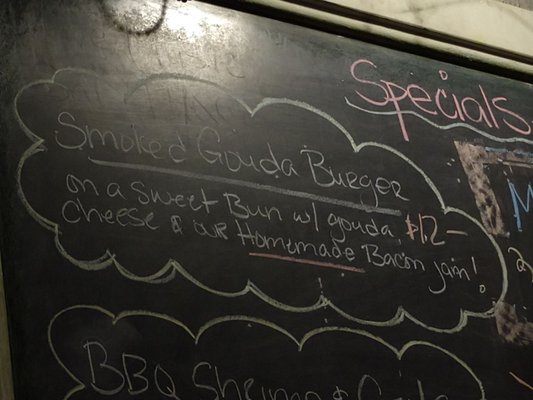 Specials
Smoked Gouda Burger
on a sweet Bun w/ gouda $12-
cheese & our Homemade Bacon jam!
BBQ Shrimp &